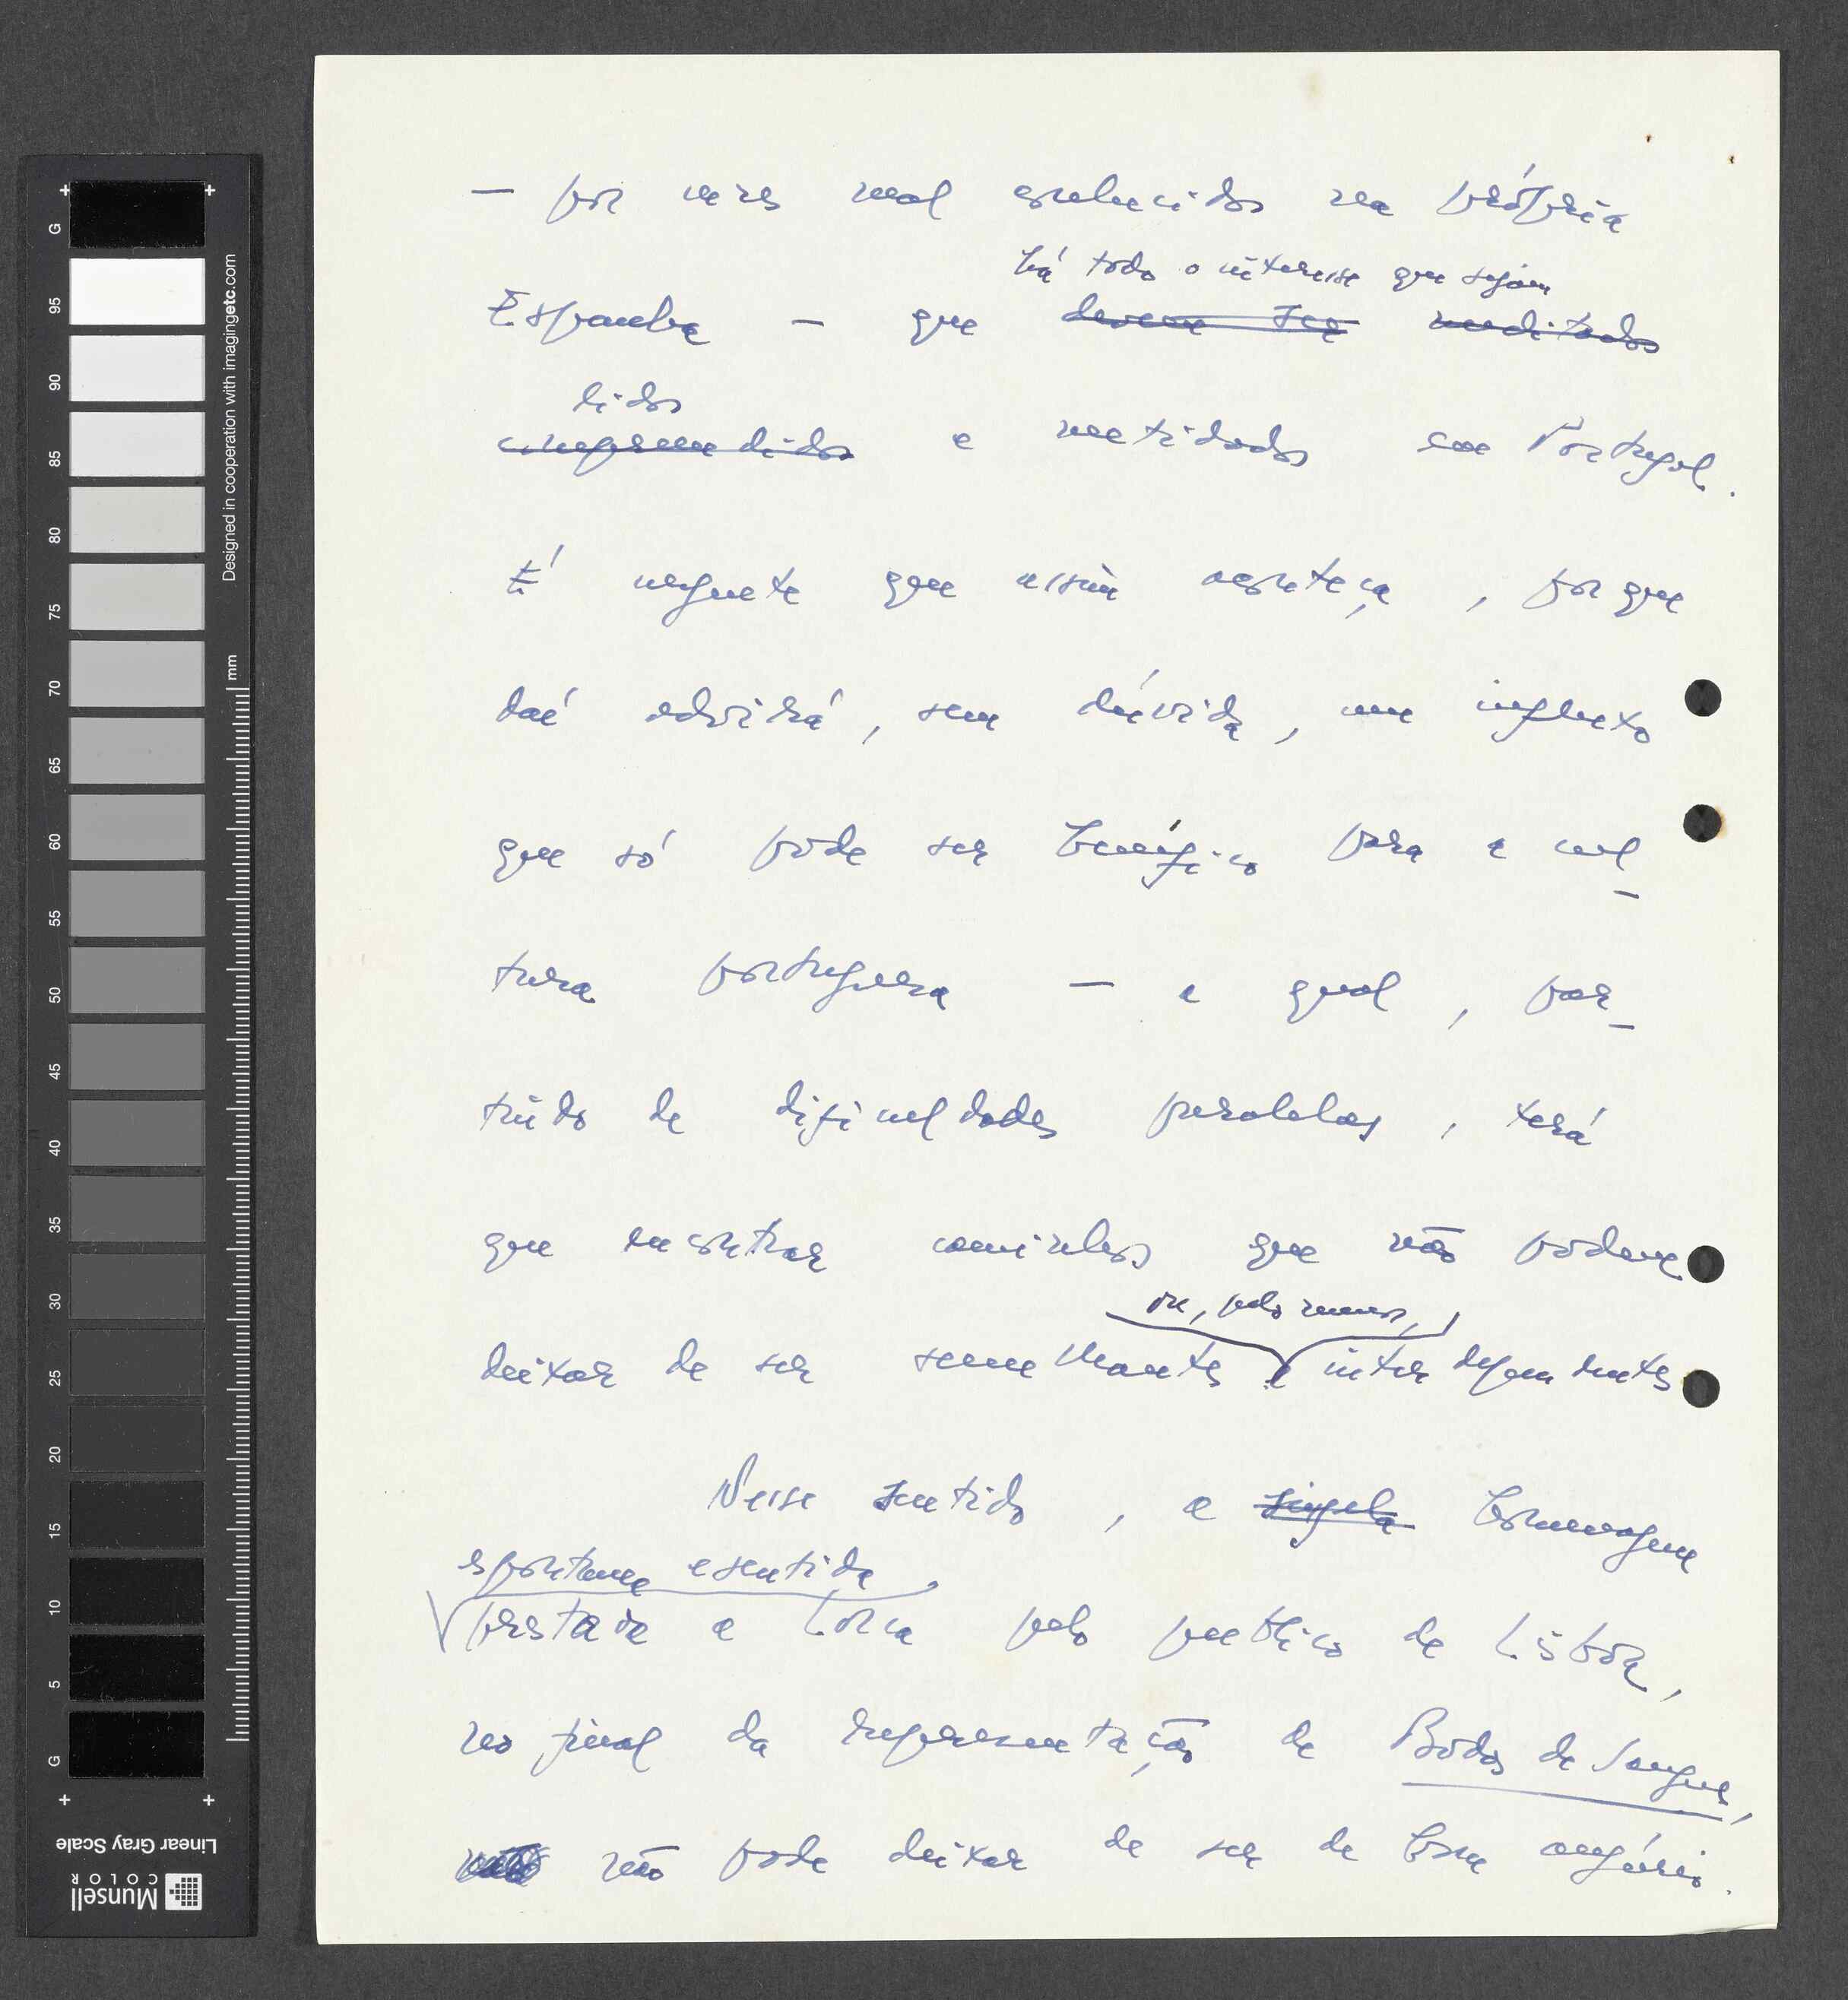 — por vezes mal conhecidos na própria
há todo o interesse que sejam
Espanha — que devem ser meditados
lidos
compreendidos e meditados em Portugal.
É urgente que assim aconteça, porque
daí advirá, sem dúvida, um influxo
que só pode ser benéfico para a cul-
tura portuguesa — a qual, par-
tindo de dificuldades paralelas, terá
que encontrar caminhos que não podem
ou, pelo menos,
deixar de ser semelhantes e interdependentes
Nesse sentido, a singela homenagem
espontanea e sentida
prestada a Lorca pelo publico de Lisboa,
no final da representação de Bodas de Sangue,
não pode deixar de ser de bom augúrio.
G
95
90
85
80
75
70
65
60
55
50
45
40
35
30
25
20
15
10
5
G
Designed in cooperation with imagingetc.com
mm
Linear Gray Scale
Munsell
COLOR